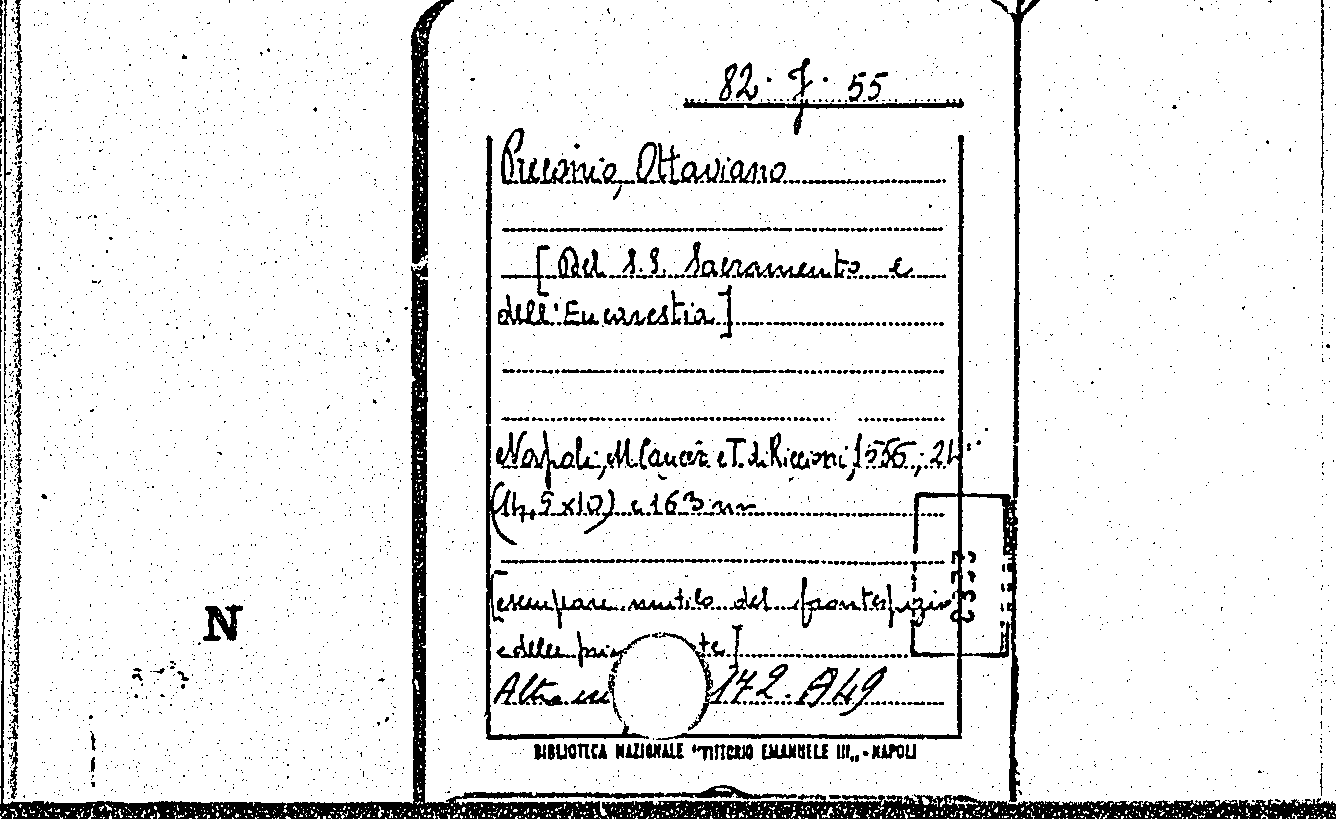 82. J. 55
Preconio, Ottaviano
[Del S.S. Sacramento e
dell'Eucarestia]
Napoli, M. Cancer e T. di Riccioni, 1556, 24°
(14,5 x 10) c 163 nn
[esemplare mutilo del frontespizio
e delle
Altro 172. A 49
N
BIBLIOTECA NAZIONALE "VITTORIO EMANUELE III" - NAPOLI